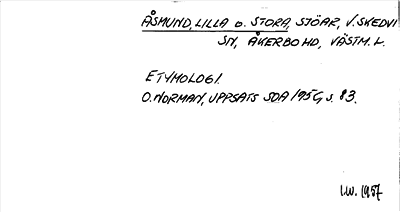 ÅSMUND, LILLA o. STORA, STÖAR, V. SKEDVI
SN, ÅKERBO HD, VÄSTM. L.
ETYMOLOGI.
O. NORMAN, UPPSATS SOA 195G s. 83.
I.W. 1957